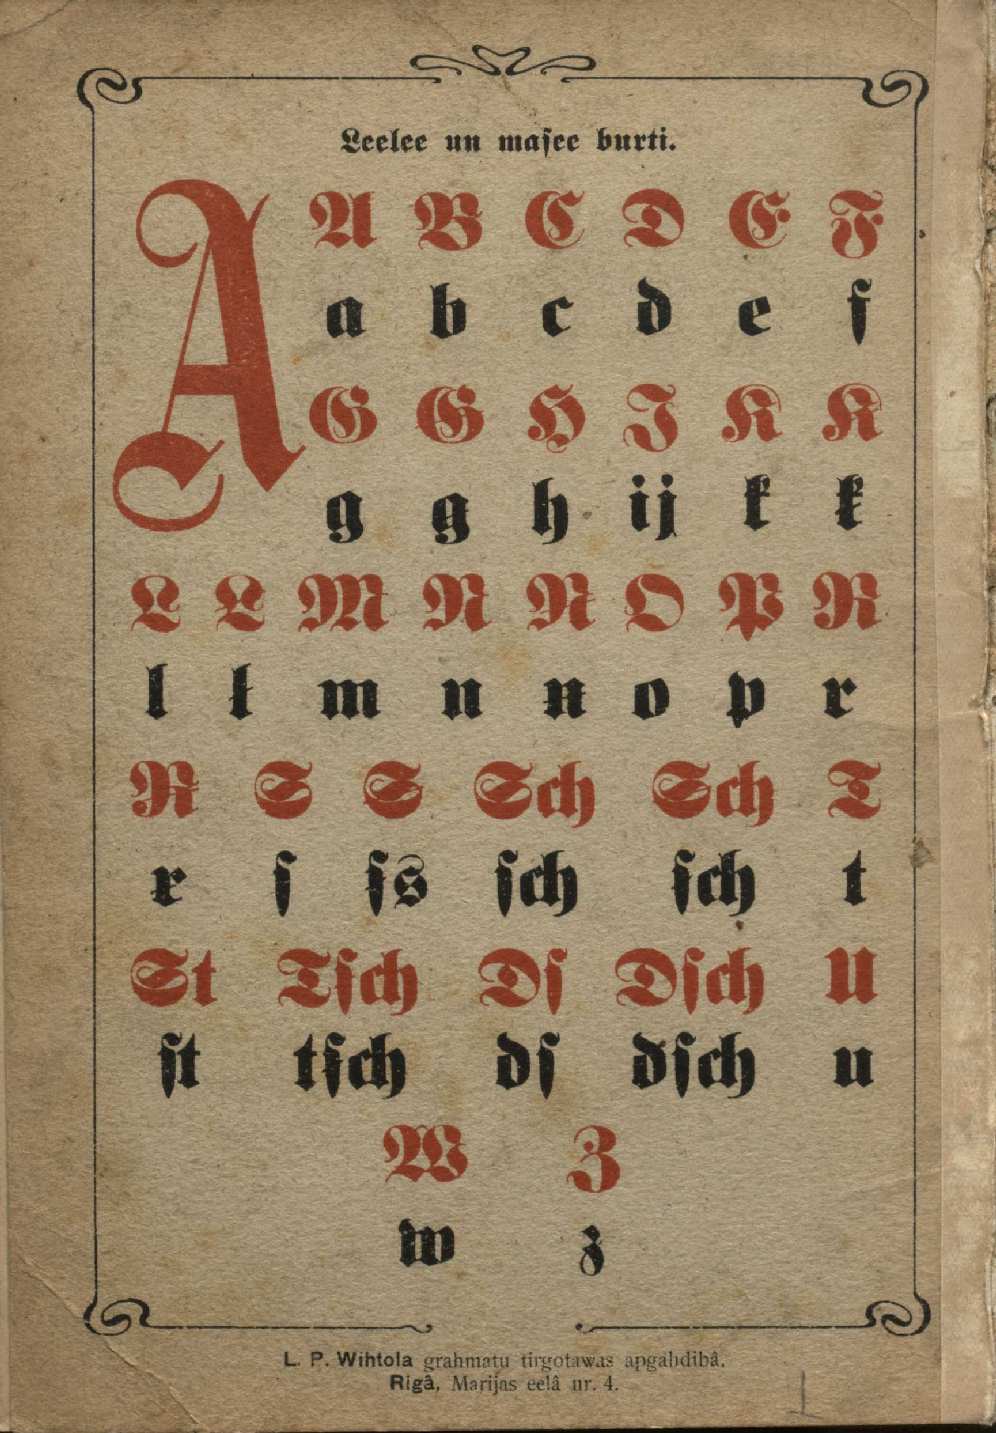 Leelee un maſee burti.
A
A B C D E F
a b c d e f
G Ꞡ H J K Ꞣ
g ꞡ h ij k ꞣ
L Ł M N Ꞥ O P R
l ł m n ꞥ o p r
Ꞧ S Ꞩ Sch Ꞩch T
ꞧ ſ ẜs ſch ẜch t
Ꞩt Tẜch Dſ Dſch U
ẜt tẜch dſ dſch u
W Z
w z
L. P. Wihtola grahmatu tirgotawas apgahdibâ.
Rigâ, Marijas eelâ nr. 4.